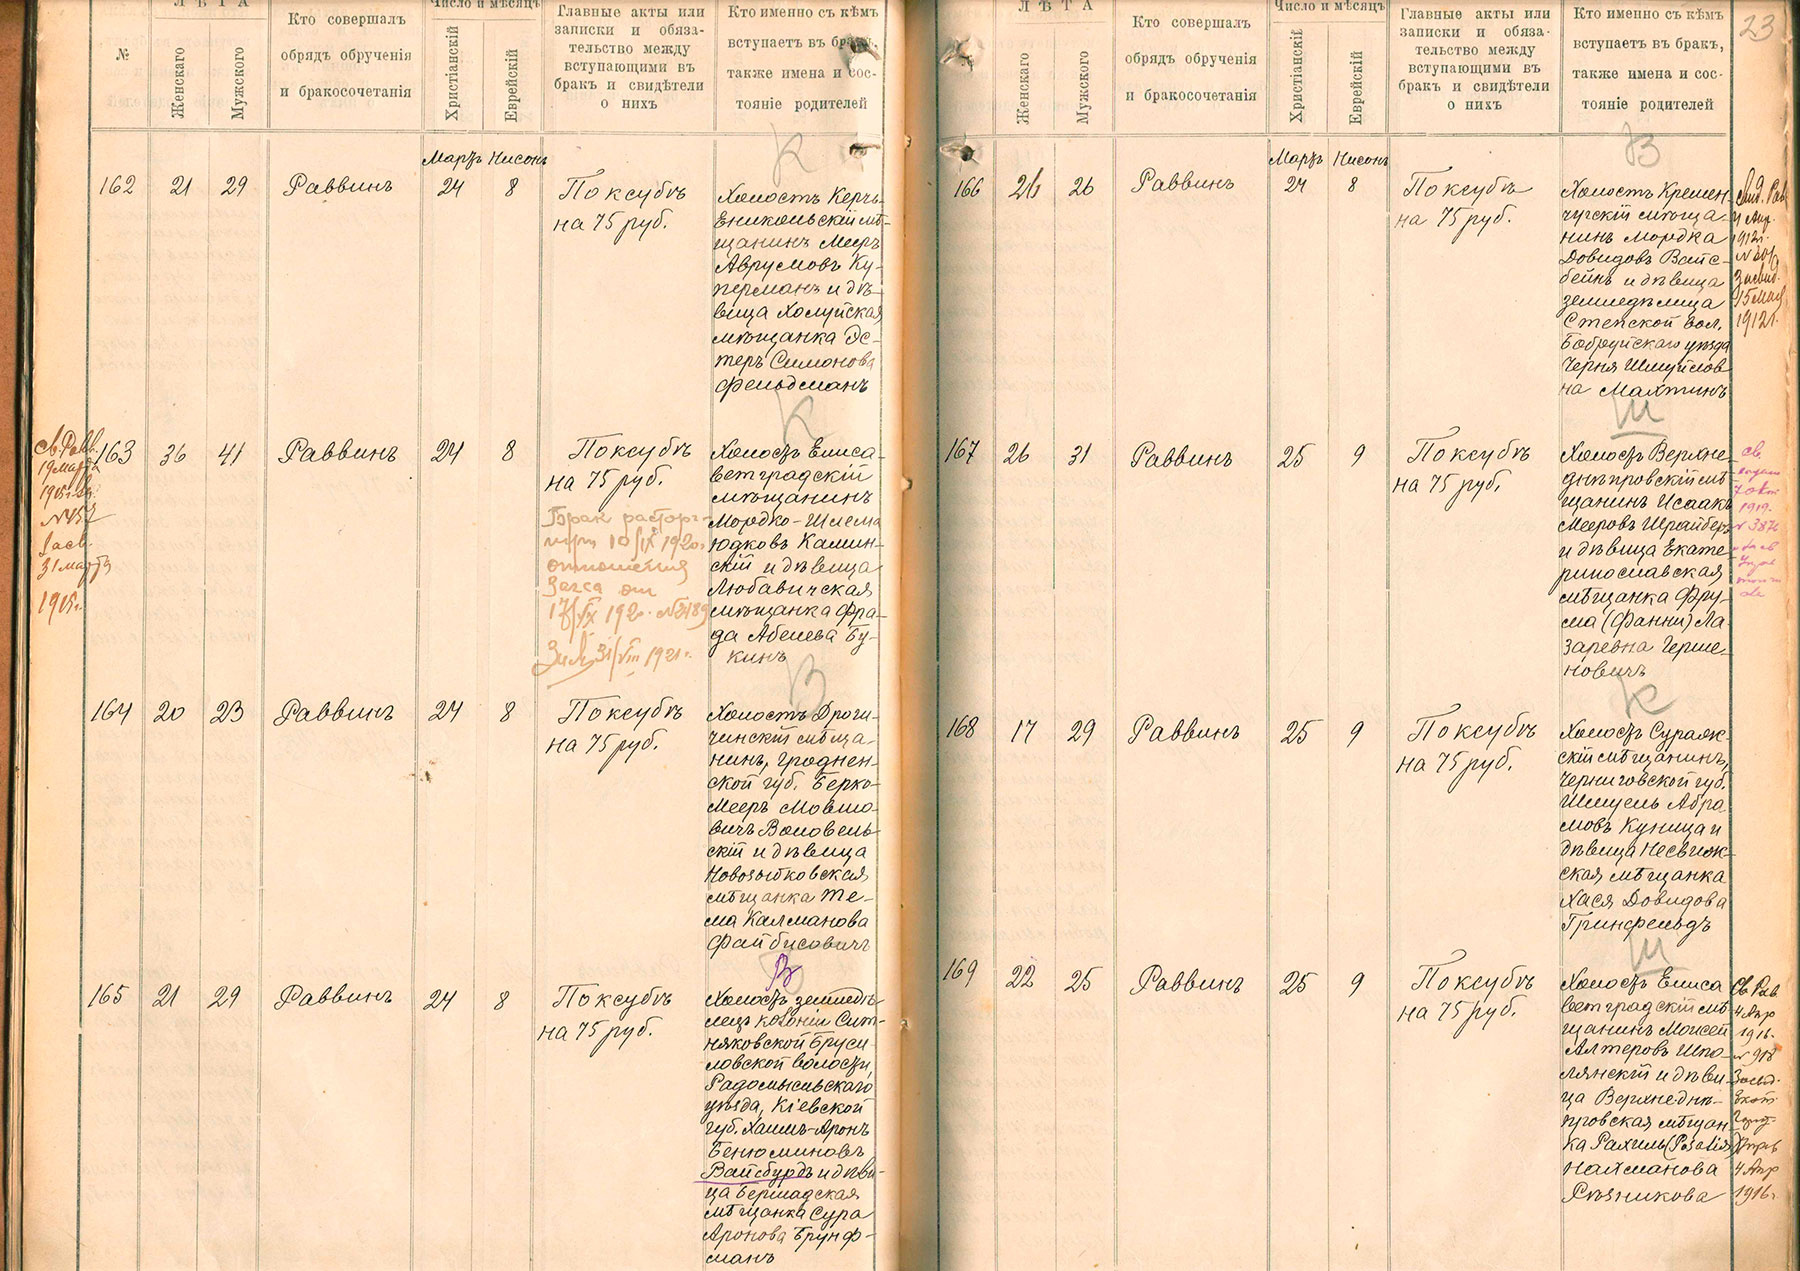 №
ЛѢТА
Женскаго
Мужского
Кто совершалъ
обрядъ обрученія
и бракосочетанія
Число и мѣсяцъ
Христіанскій
Еврейскій
Главные акты или
записки и обяза-
тельство между
вступающими въ
бракъ и свидѣтели
о нихъ
Кто именно съ кѣмъ
вступаетъ въ бракъ,
также имена и сос-
тояніе родителей
К
Мартъ Нисонъ
162 21 29 Раввинъ 24 8
По ксубѣ
на 75 руб.
Холостъ Керчь-
Еникольскій мѣ-
щанинъ Мееръ
Аврумовъ Ку-
перманъ и дѣ-
вица Холуйская
мѣщанка Эс-
теръ Симонова
Фельдманъ
К
Св. Равв.
19 марта
1915 г.
№ 457
Засв.
31 марта
1915 г.
163 36 41 Раввинъ 24 8
По ксубѣ
на 75 руб.
Брак расторг-
10/IX 1920 г.
отношения
Загса от
17/IX 1920 г. № 2189
31/VIII 1921 г.
Холостъ Елиса-
ветградскій
мѣщанинъ
Мордко-Шлема
Юдковъ Камин-
скій и дѣвица
Любавичская
мѣщанка Фра-
да Абелева Бу-
кинъ
В
164 20 23 Раввинъ 24 8
По ксубѣ
на 75 руб.
Холостъ Дроги-
чинскій мѣща-
нинъ, Гроднен-
ской губ. Берко-
Мееръ Мовшо-
вичъ Воловель-
скій и дѣвица
Новозыбковская
мѣщанка Те-
ма Калманова
Файбисовичъ
В
165 21 29 Раввинъ 24 8
По ксубѣ
на 75 руб.
Холостъ земледѣ-
лецъ колоніи Сит-
няковской Бруси-
ловской волости,
Радомысльскаго
уѣзда, Кіевской
губ. Хаимъ-Аронъ
Беньюминовъ
Вайсбурдъ и дѣви-
ца Бершадская
мѣщанка Сура
Аронова Брунф-
манъ
23
ЛѢТА
Женскаго
Мужского
Кто совершалъ
обрядъ обрученія
и бракосочетанія
Число и мѣсяцъ
Христіанскій
Еврейскій
Главные акты или
записки и обяза-
тельство между
вступающими въ
бракъ и свидѣтели
о нихъ
Кто именно съ кѣмъ
вступаетъ въ бракъ,
также имена и сос-
тояніе родителей
В
Мартъ Нисонъ
166 26 26 Раввинъ 24 8
По ксубѣ
на 75 руб.
Холостъ Кремен-
чугскій мѣща-
нинъ Мордка
Довидовъ Вайс-
бейнъ и дѣвица
земледѣлица
Степской вол.
Бобруйскаго уѣзда
Черня Шмуйлов
на Махтинъ
Рав.
Апр.
1912 г.
15 Мая
1912 г.
Ш
167 26 31 Раввинъ 25 9
По ксубѣ
на 75 руб.
Холостъ Верхне-
днѣпровскій мѣ-
щанинъ Исаакъ
Мееровъ Шрайберъ
и дѣвица Екате-
ринославская
мѣщанка Фру-
ма (Фанни) Ла-
заревна Герше-
новичъ
Св.
7 Окт
1919.
К
168 17 29 Раввинъ 25 9
По ксубѣ
на 75 руб.
Холостъ Сураж-
скій мѣщанинъ,
Черниговской губ.
Шмуель Абра-
мовъ Куница и
дѣвица Несвиж-
ская мѣщанка
Хася Довидова
Гринфельдъ
Ш
169 22 25 Раввинъ 25 9
По ксубѣ
на 75 руб.
Холостъ Елиса
ветградскій мѣ
щанинъ Моисей
Алтеровъ Шпо-
лянскій и дѣви-
ца Верхнеднѣ-
провская мѣщан-
ка Рахиль (Розалія)
Нахманова
Рѣзникова
Св. Рав.
4 Апр
1916.
№ 918
4 Апр
1916 г.